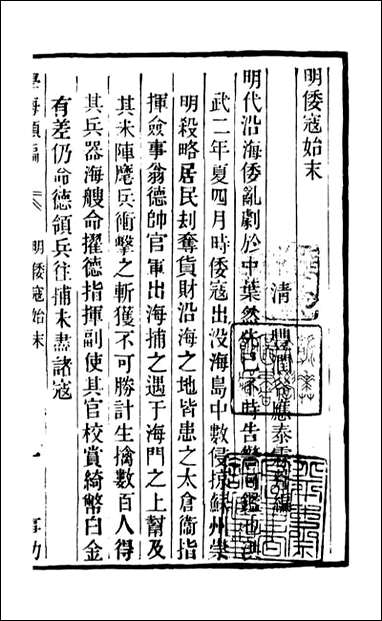 明倭寇始末
清 豐潤谷應泰
明代沿海倭亂劇於中葉然先已不時告警
武二年夏四月時倭寇出没海島中數侵掠蘇州崇
明殺略居民刦奪貨財沿海之地皆患之太倉衛指
揮僉事翁德帥官軍出海捕之遇于海門之上幫及
其未陣麾兵衝擊之斬獲不可勝計生擒數百人得
其兵器海艘命擢德指揮副使其官校賞綺幣白金
有差仍命德領兵往捕未盡諸寇
學海類編
明倭寇始末
一
事功